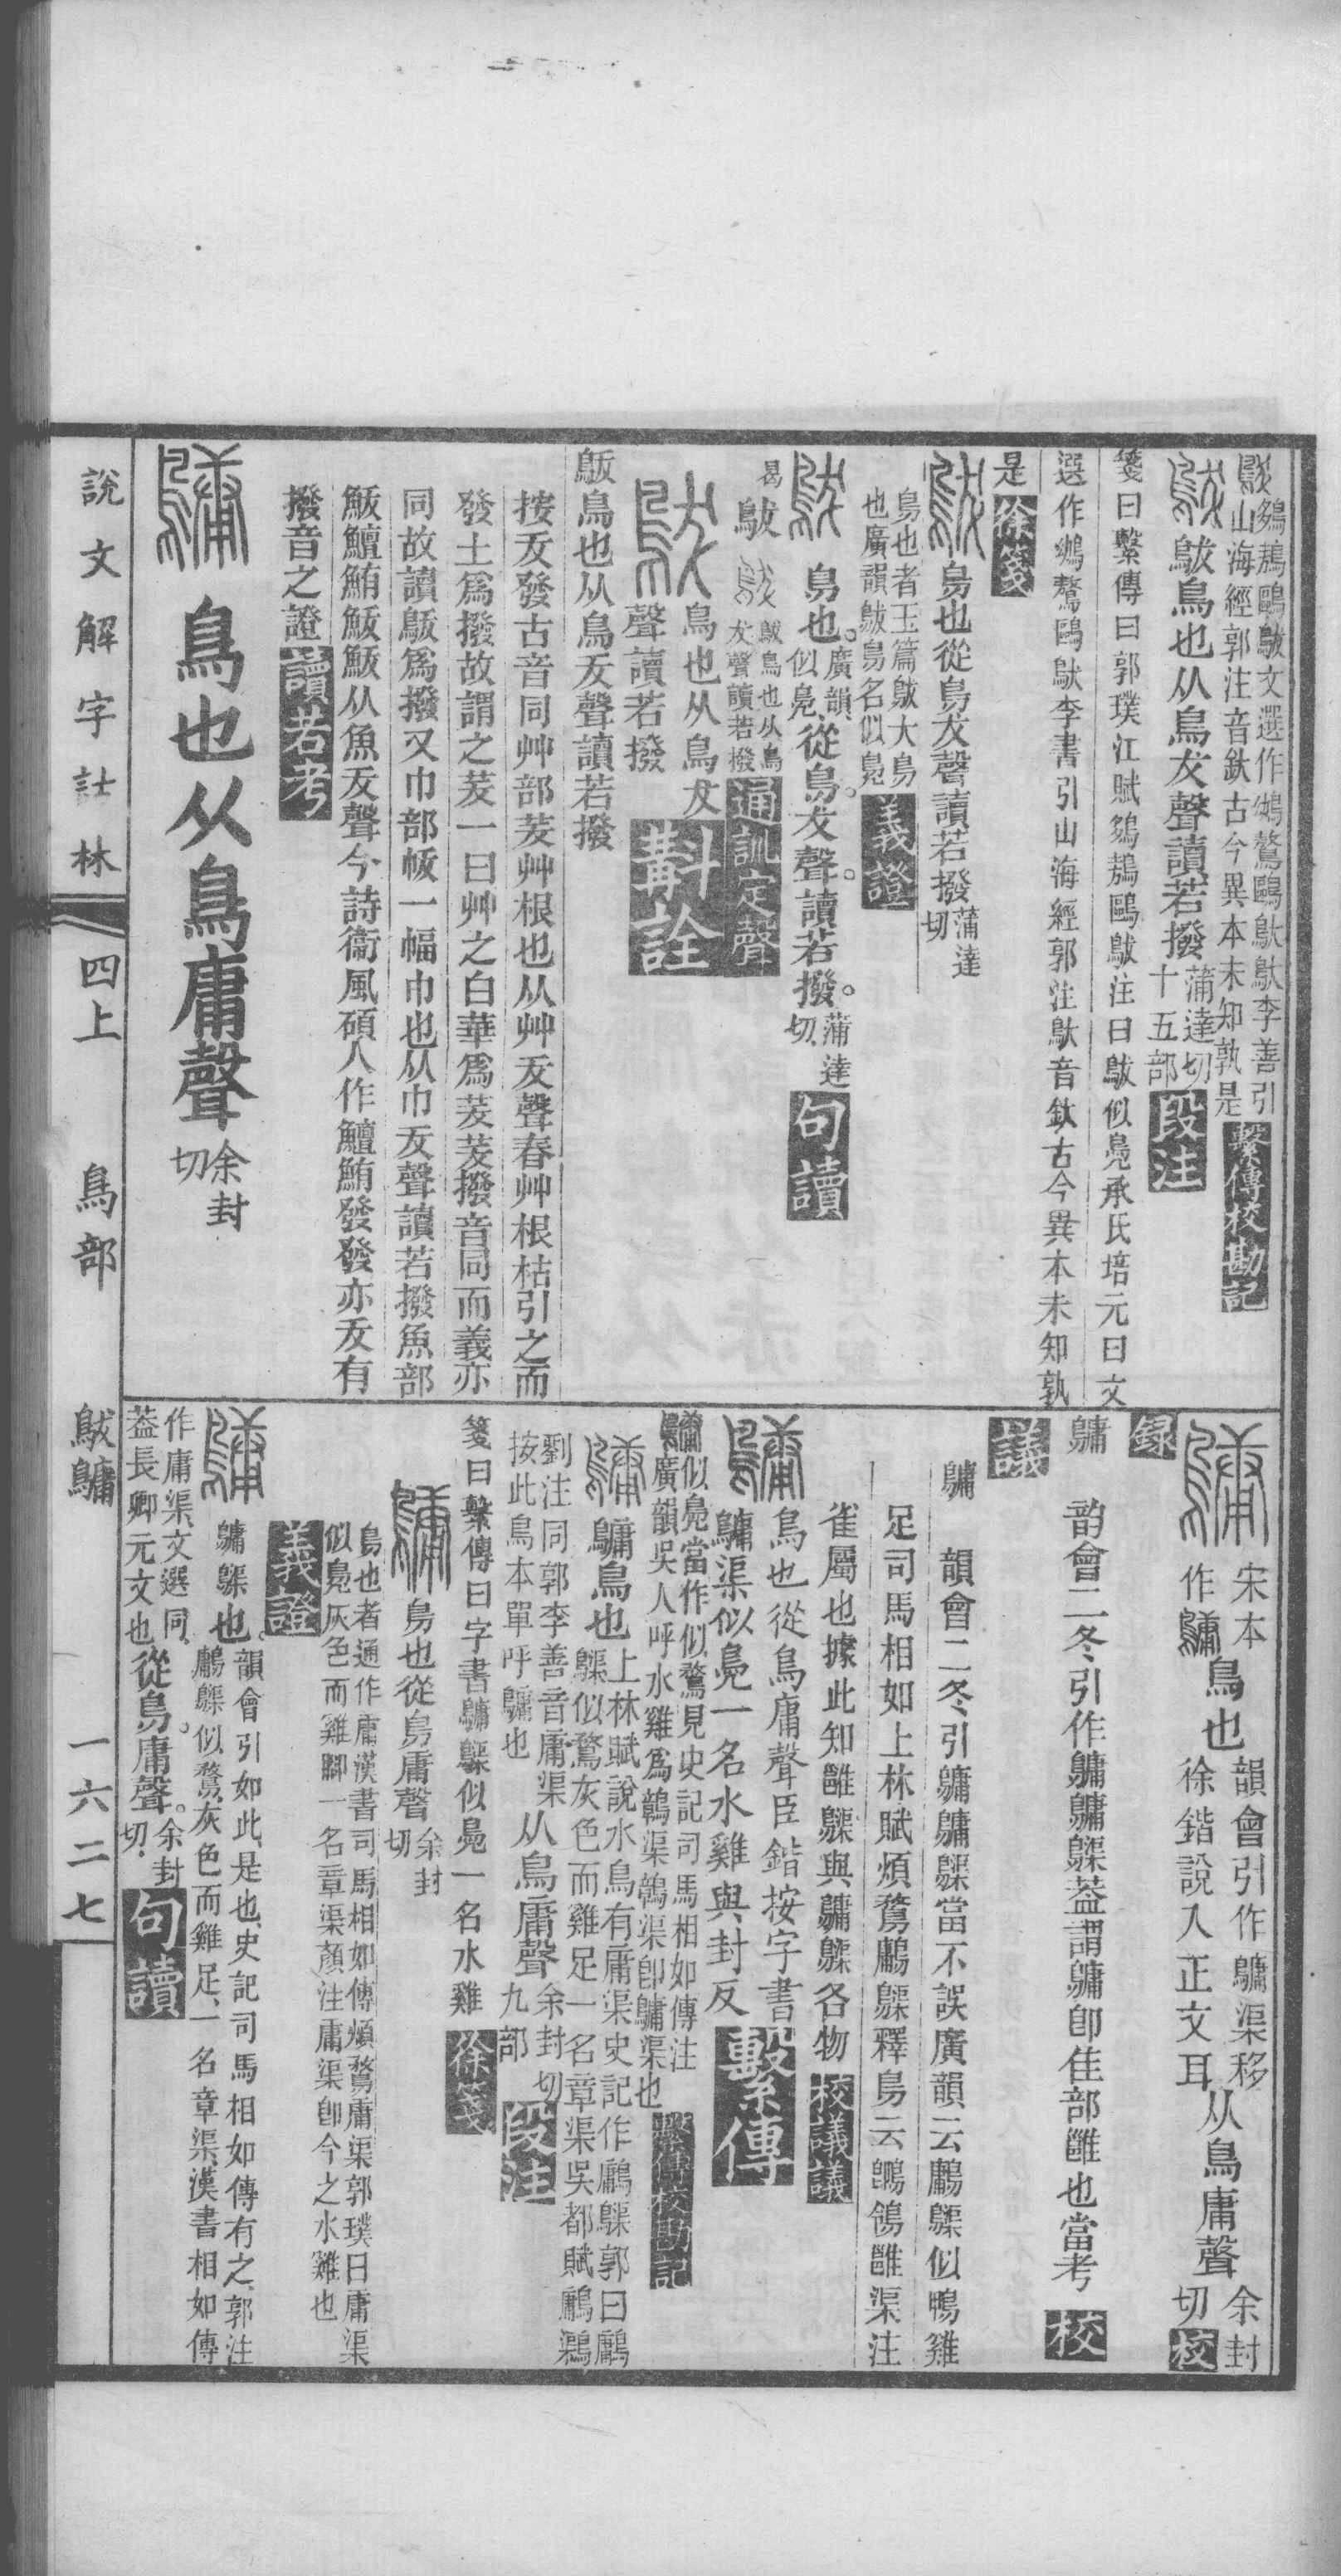 鴗鵁鷗鮁文選作鵁鶩鷗鴥鴥李善引
山海經郭注音鈦古今異本未知孰是繫傳校勘記
鮁鳥也从鳥犮聲讀若撥蒲達切十五部段注
箋曰繫傳曰郭璞江賦鵁鷗注曰似鳧承氏培元曰文
選作鶩鷗鴥李書引山海經郭注鴥音鈦古今異本未知孰
是徐箋
鳥也從鳥犮聲讀若撥蒲達切
鳥也者玉篇大鳥
也廣韻鳥名似鳧義證
鳥也。廣韻似鳧。從鳥。犮聲。讀若撥。蒲達切句讀
曷 鳥也从鳥犮聲讀若撥通訓定聲
鳥也从鳥犮
聲讀若撥斠詮
鳥也从鳥犮聲讀若撥
按犮發古音同艸部茇艸根也从艸犮聲春艸根枯引之而
發土爲撥故謂之茇一曰艸之白華爲茇茇撥音同而義亦
同故讀爲撥又巾部帗一幅巾也从巾犮聲讀若撥魚部
鮁鱣鮪鮁鮁从魚犮聲今詩衞風碩人作鱣鮪發發亦犮有
撥音之證讀若考
鳥也从鳥庸聲余封切
說文解字詁林
四上 鳥部
鷛
一六二七
宋本作鷛鳥也韻會引作鷛渠移徐鍇說入正文耳从鳥庸聲余封切校
錄
鷛 韵會二冬引作鷛鷛䴋葢謂鷛卽隹部雝也當考校
議
鷛 韻會二冬引鷛鷛䴋當不誤廣韻云䴋似鴨雞
足司馬相如上林賦煩鶩䴋釋鳥云鶺鴒雝渠注
雀屬也據此知雝䴋與鷛䴋各物校議議
鳥也從鳥庸聲臣鍇按字書
鷛渠似鳧一名水雞與封反繫傳
似鳧當作似鶩見史記司馬相如傳注
廣韻吳人呼水雞爲渠渠卽鷛渠也繫傳校勘記
鷛鳥也上林賦說水鳥有庸渠史記作䴋郭曰
䴋似鶩灰色而雞足一名章渠吳都賦
劉注同郭李善音庸渠
按此鳥本單呼鷛也从鳥庸聲余封切九部段注
箋曰繫傳曰字書鷛䴋似鳧一名水雞徐箋
鳥也從鳥庸聲余封切
鳥也者通作庸漢書司馬相如傳煩鶩庸渠郭璞曰庸渠
似鳧灰色而雞腳一名章渠顏注庸渠卽今之水雞也
義證
鷛䴋也。韻會引如此、是也、史記司馬相如傳有之、郭注
䴋似鶩、灰色而雞足、一名章渠、漢書相如傳
作庸渠、文選同、
葢長卿元文也從鳥。庸聲。余封切、句讀